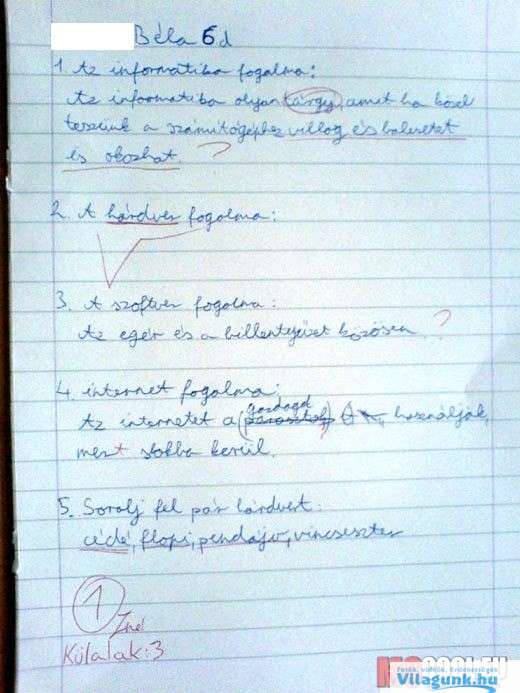 Béla 6d
1. Az informatika fogalma:
Az informatika olyan tárgy, amit ha közel
teszünk a számítógéphez villog és balesetet
is okozhat. ?
2. A hárdver fogalma:
3. A szoftver fogalma:
Az egér és a billentyűzet közösen. ?
4. internet fogalma:
gazdagd
Az internetet a (parasztok) használják,
mert sokba kerül.
5. Sorolj fel pár hárdvert:
cédé, flopi, pendájv, vincseszter
1
Külalak:3
Vilagunk.hu